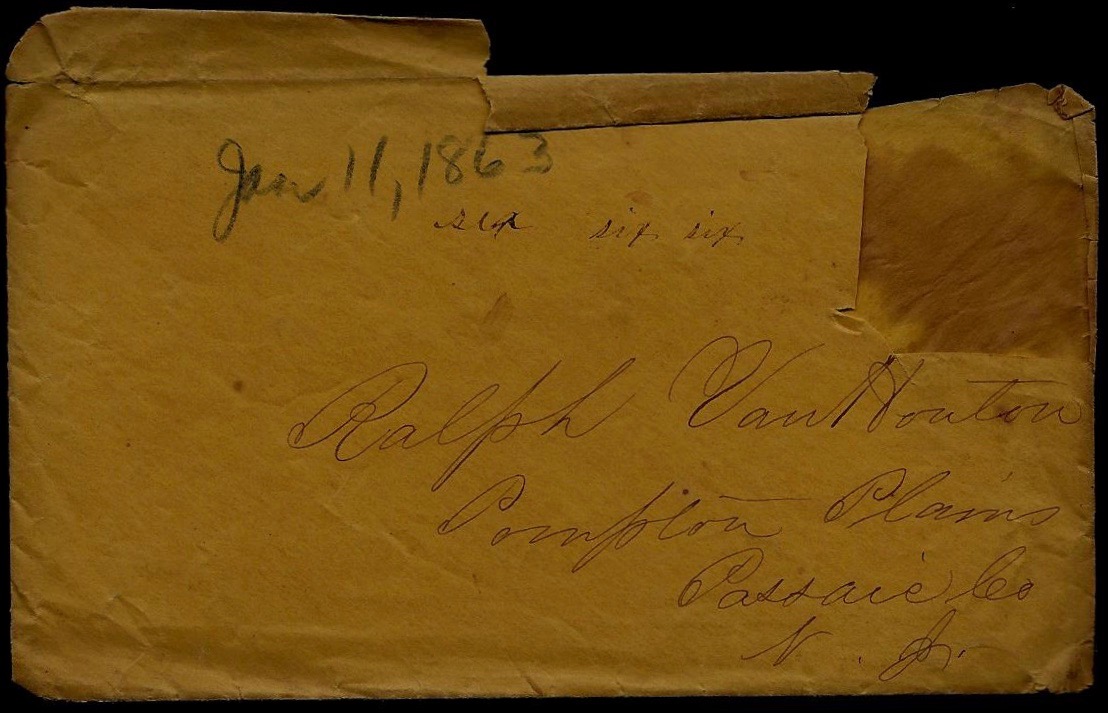 Jan 11, 1863
six six six
Ralph Van Houton
Pompton Plains
Passaic Co
N. J.